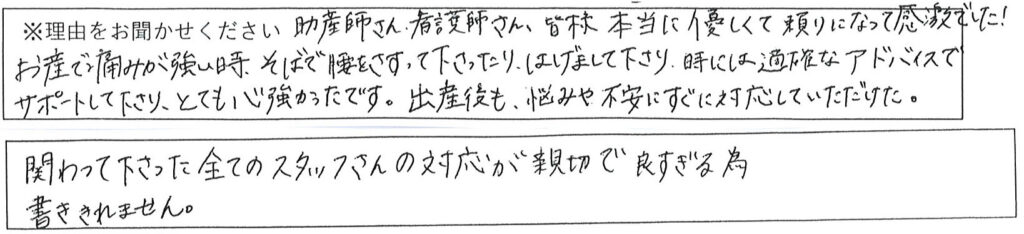 ※理由をお聞かせください 助産師さん、看護師さん、皆様 本当に優しくて頼りになって感激でした!
お産で痛みが強い時、そばで腰をさすって下さったり、はげまして下さり、時には適確なアドバイスで
サポートして下さり、とても心強かったです。出産後も、悩みや不安にすぐに対応していただけた。
関わって下さった全てのスタッフさんの対応が親切で良すぎる為
書ききれません。